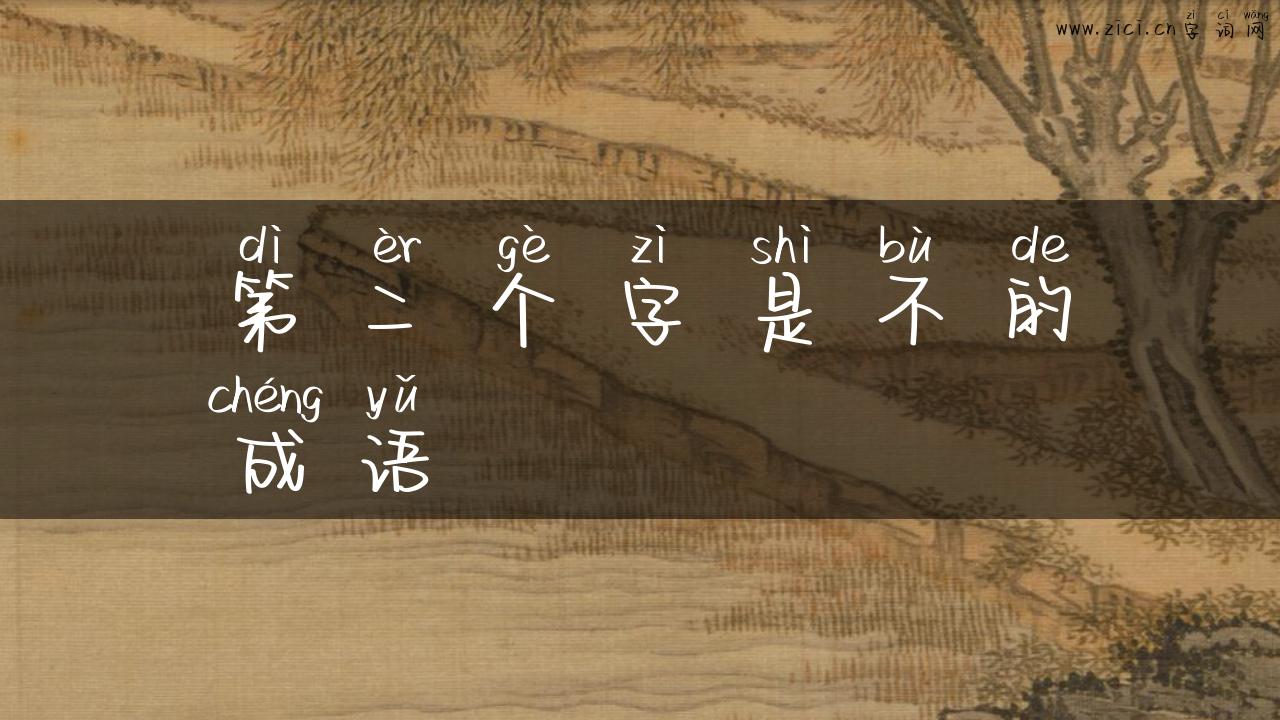 zì cí wǎng
www.zici.cn字词网
dì èr gè zì shì bù de
第二个字是不的
chéng yǔ
成语